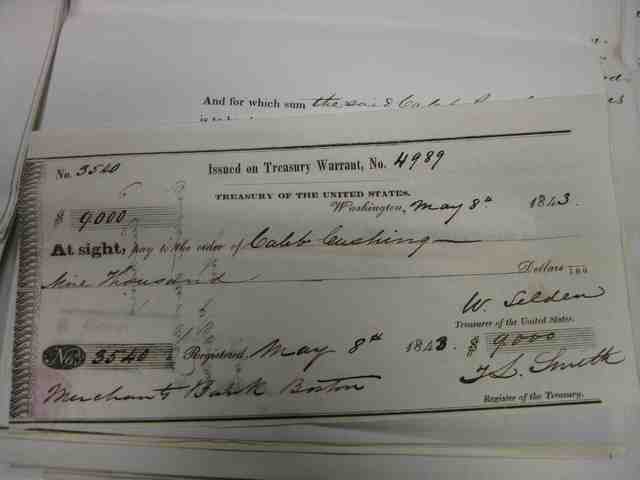 And for which sum the said Caleb
No. 3540 Issued on Treasury Warrant, No. 4989
TREASURY OF THE UNITED STATES.
$ 9000 Washington, May 8th 1843.
At sight, pay to the order of Caleb Cushing
Nine Thousand Dollars 100
W. Selden
Treasurer of the United States.
No. 3540 Registered May 8th 1843. $ 9000
T. L. Smith
Merchants Bank Boston
Register of the Treasury.